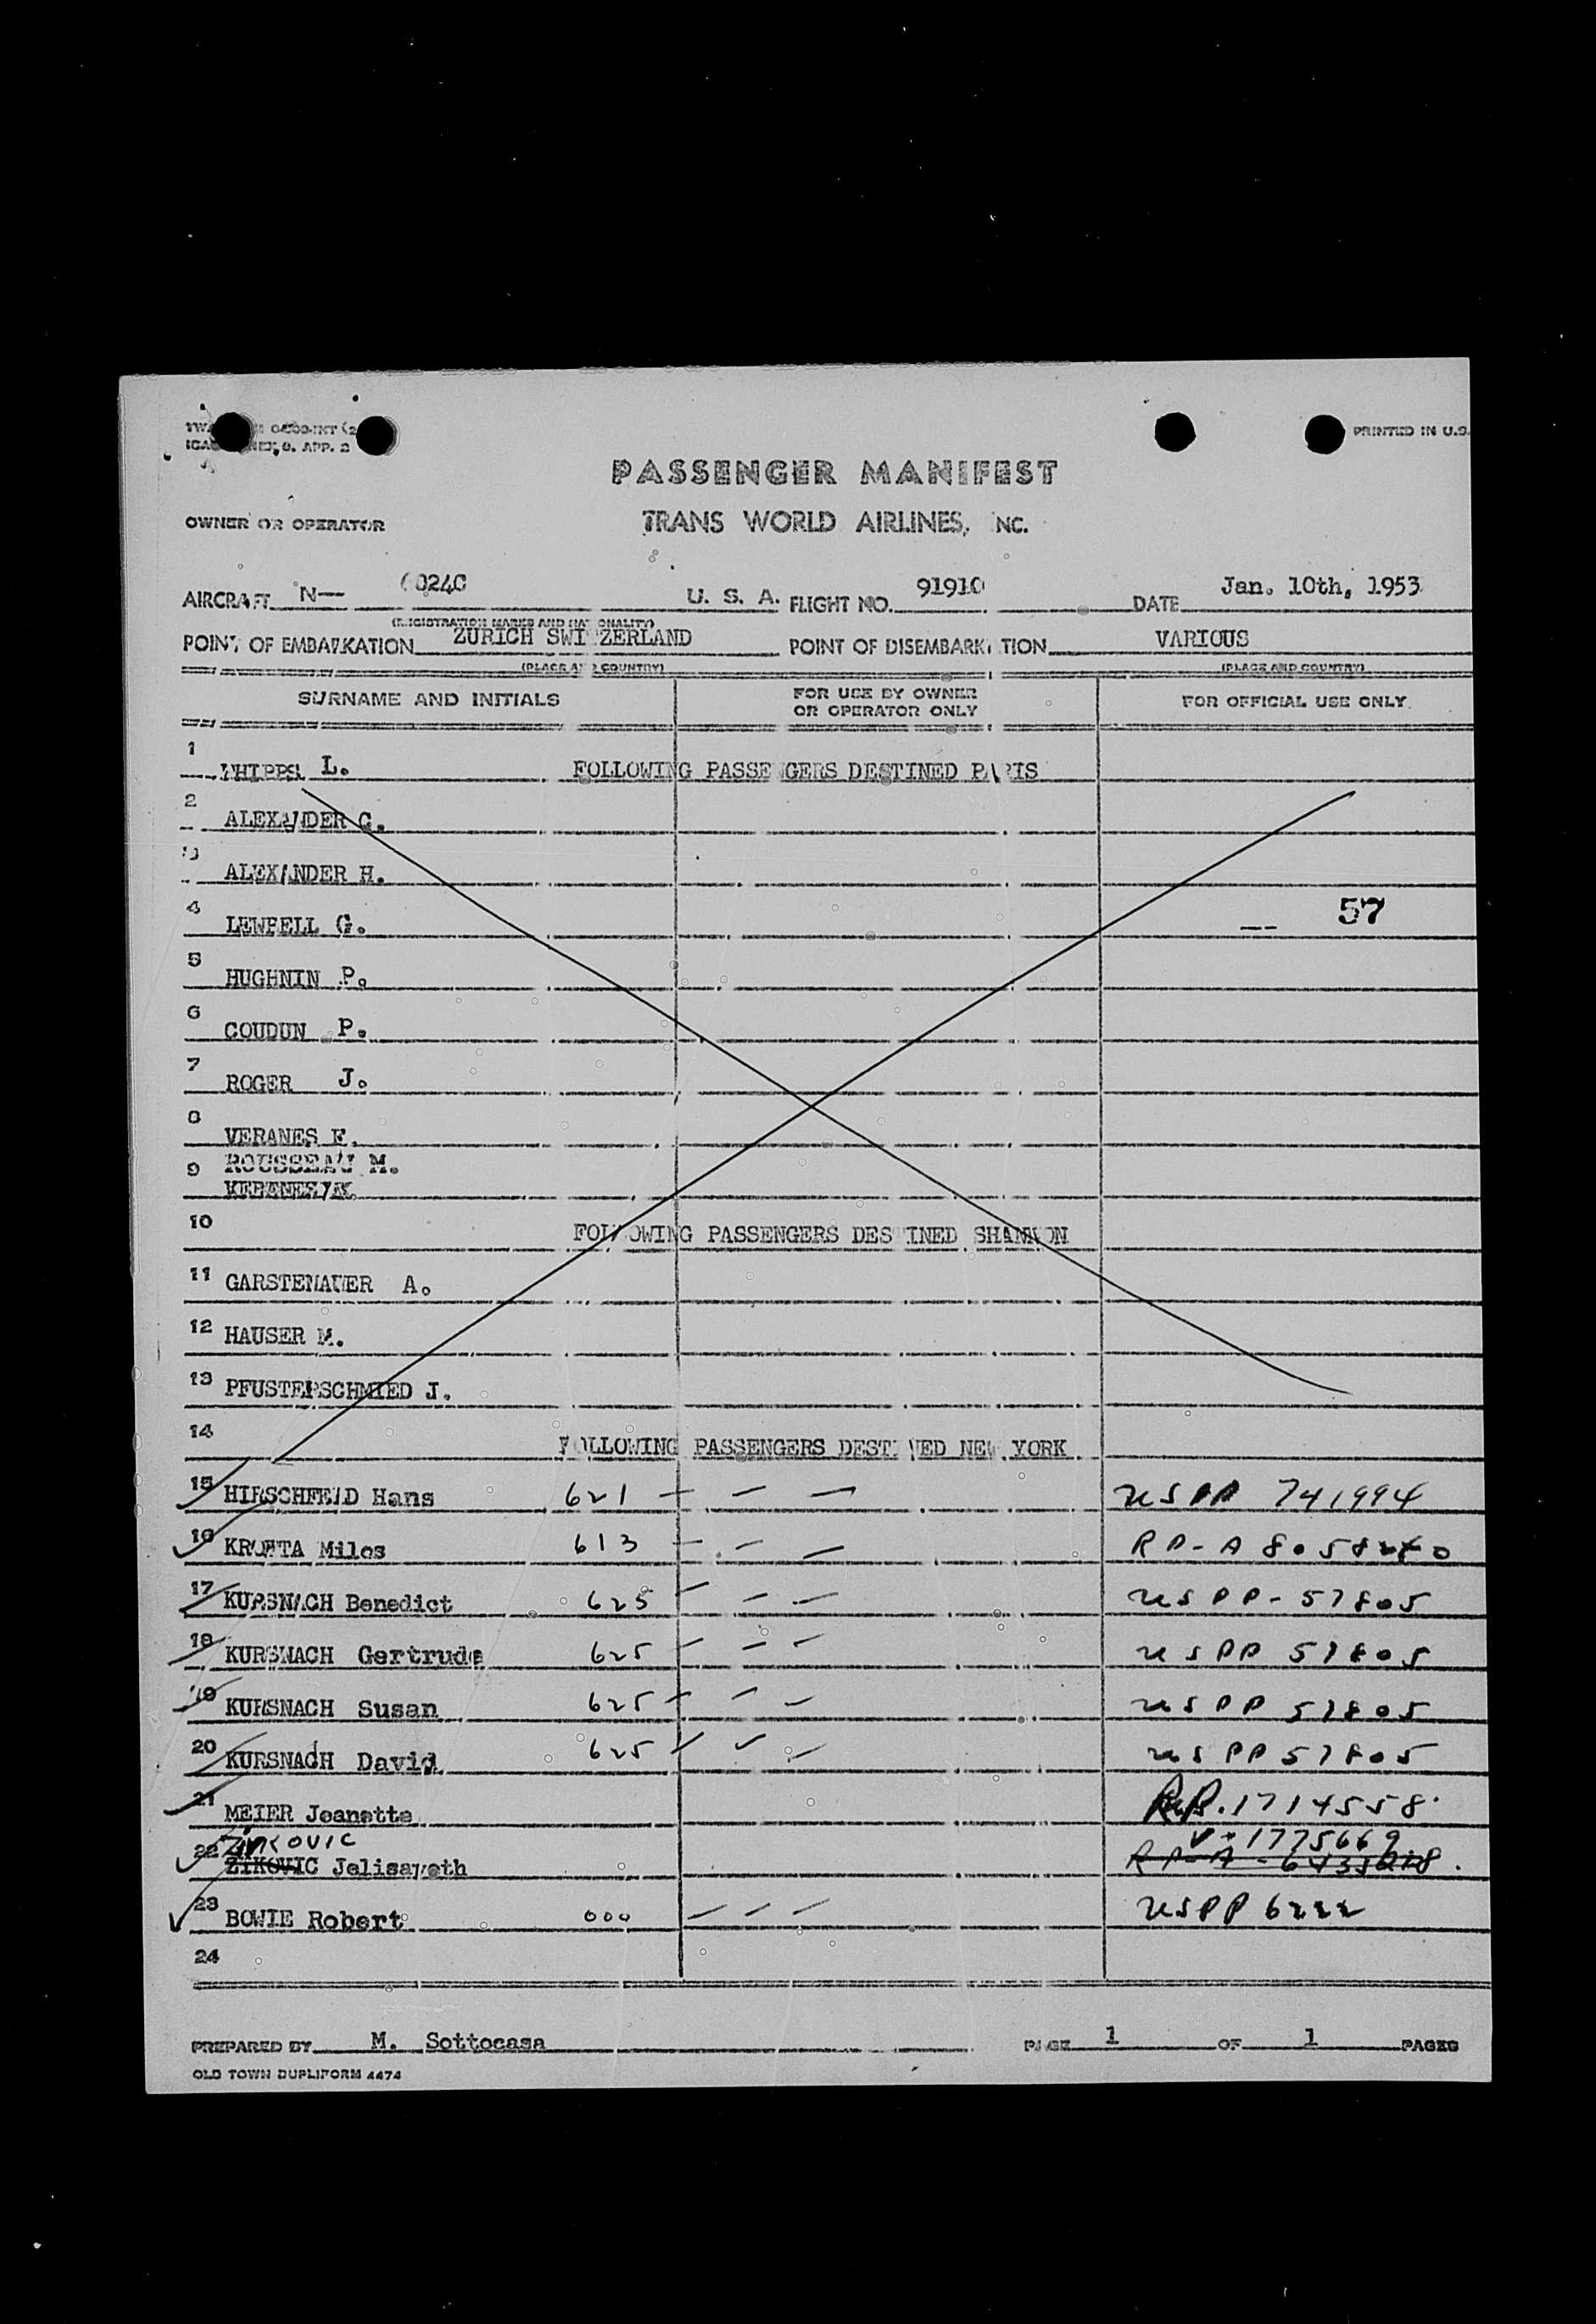 PRINTED IN U.S.
PASSENGER MANIFEST
OWNER OR OPERATOR TRANS WORLD AIRLINES, NC.
AIRCRAFT N— 0240 U. S. A. FLIGHT NO. 91910 DATE Jan. 10th, 1953
(REGISTRATION MARKS AND NATIONALITY)
POINT OF EMBARKATION ZURICH SWITZERLAND POINT OF DISEMBARKATION VARIOUS
(PLACE AND COUNTRY) (PLACE AND COUNTRY)
SURNAME AND INITIALS FOR USE BY OWNER OR OPERATOR ONLY FOR OFFICIAL USE ONLY
1 L. FOLLOWING PASSENGERS DESTINED PARIS
2 ALEXANDER C.
3 ALEXANDER H.
4 G. 57
5 HUGHNIN P.
6 COUDUN P.
7 ROGER J.
8 VERANES F.
9 ROUSSEAU M.
10 FOLLOWING PASSENGERS DESTINED SHANNON
11 GARSTENAUER A.
12 HAUSER M.
13 PFUSTERSCHMIED J.
14 FOLLOWING PASSENGERS DESTINED NEW YORK
15 HIRSCHFELD Hans 621 — — — USPP 741994
16 Milos 613 — — —
17 KURSNACH Benedict 625 — — — USPP-57805
18 KURSNACH Gertrude 625 — — — USPP 57805
19 KURSNACH Susan 625 — — — USPP 57805
20 KURSNACH David 625 USPP 57805
21 MEIER Jeanette 1714558
ZIVKOVIC V-1775669
22 ZIKOVIC Jelisaveth
23 BOWIE Robert 000 — — — USPP 6222
24
PREPARED BY M. Sottocasa PAGE 1 OF 1 PAGES
OLD TOWN DUPLIFORM 4474